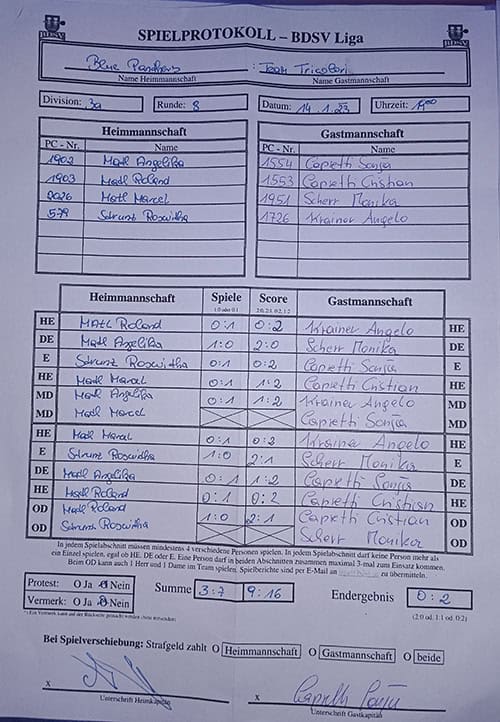 SPIELPROTOKOLL – BDSV Liga
BDSV BDSV
Blue Panthers : Team Tricolori
Name Heimmannschaft Name Gastmannschaft
Division: 3a Runde: 8 Datum: 14.1.23 Uhrzeit:
Heimmannschaft Gastmannschaft
PC - Nr. Name PC - Nr. Name
1902 Matl Angelika 1554 Capietti Sonja
1903 Matl Roland 1553 Capietti Cristian
2026 Matl Marcel 1951 Scherr Monika
579 Strunz Roswitha 1726 Krainer Angelo
Heimmannschaft Spiele Score Gastmannschaft
1:0 oder 0:1 2:0, 2:1, 0:2, 1:2
HE Matl Roland 0:1 0:2 Krainer Angelo HE
DE Matl Angelika 1:0 2:0 Scherr Monika DE
E Strunz Roswitha 0:1 0:2 Capietti Sonja E
HE Matl Marcel 0:1 1:2 Capietti Cristian HE
MD Matl Angelika 0:1 1:2 Krainer Angelo MD
MD Matl Marcel Capietti Sonja MD
HE Matl Marcel 0:1 0:2 Krainer Angelo HE
E Strunz Roswitha 1:0 2:1 Scherr Monika E
DE Matl Angelika 0:1 1:2 Capietti Sonja DE
HE Matl Roland 0:1 0:2 Capietti Cristian HE
OD Matl Roland 1:0 2:1 Capietti Cristian OD
OD Strunz Roswitha Scherr Monika OD
In jedem Spielabschnitt müssen mindestens 4 verschiedene Personen spielen. In jedem Spielabschnitt darf keine Person mehr als
ein Einzel spielen, egal ob HE, DE oder E. Eine Person darf in beiden Abschnitten zusammen maximal 3-mal zum Einsatz kommen.
Beim OD kann auch 1 Herr und 1 Dame im Team spielen. Spielberichte sind per E-Mail an zu übermitteln.
Protest: O Ja O Nein Summe 3:7 9:16 Endergebnis 0:2
Vermerk: O Ja O Nein (2:0 od. 1:1 od. 0:2)
Bei Spielverschiebung: Strafgeld zahlt O Heimmannschaft O Gastmannschaft O beide
x x Capietti Sonja
Unterschrift Heimkapitän Unterschrift Gastkapitän